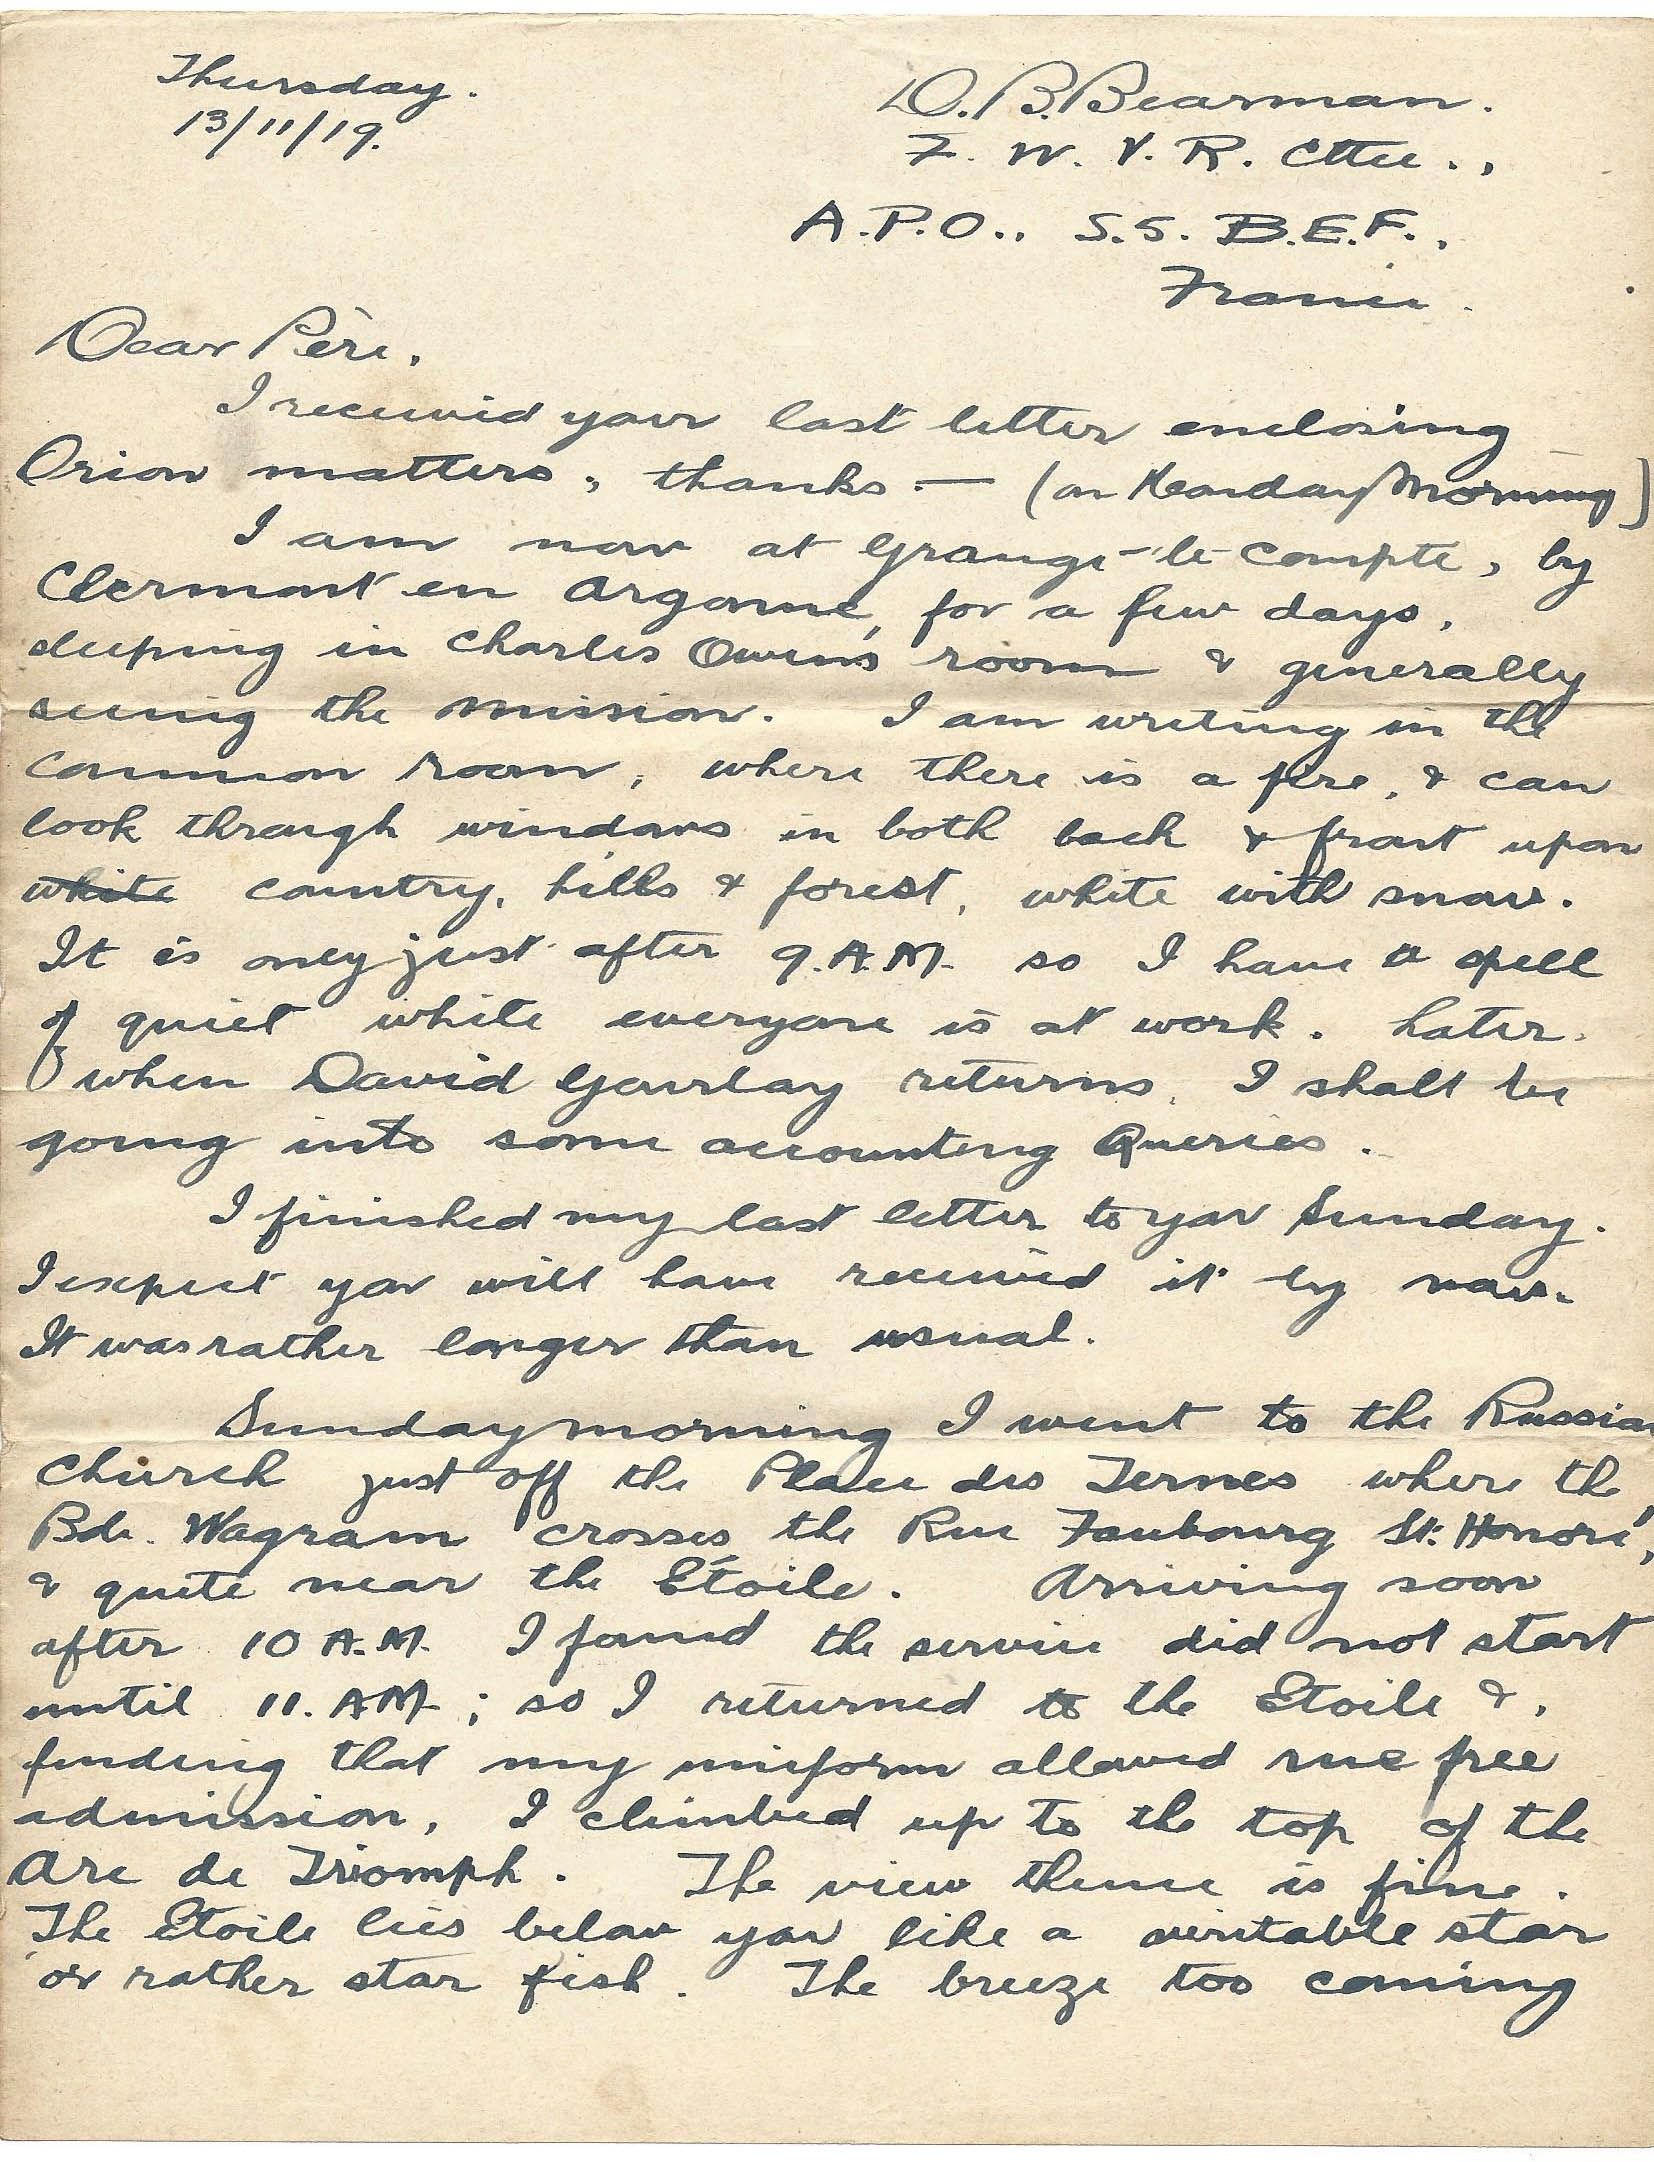 Thursday.
13/11/19.
D.B.Bearman.
F. W. V. R. Cttee.,
A.P.O., S.5. B.E.F.,
France.
Dear Père,
I received your last letter enclosing
Orion matters, thanks — (on Monday Morning)
I am now at Grange-le-Compte, by
Clermont en Argonne, for a few days,
sleeping in Charles Owen's room & generally
seeing the mission. I am writing in the
common room, where there is a fire, & can
look through windows in both back & front upon
white country, hills & forest, white with snow.
It is only just after 9.A.M. so I have a spell
of quiet while everyone is at work. Later,
when David Gourlay returns, I shall be
going into some accounting Queries.
I finished my last letter to you Sunday.
I expect you will have received it by now.
It was rather longer than usual.
Sunday morning I went to the Russian
Church just off the Place des Ternes where the
Bde. Wagram crosses the Rue Faubourg St. Honoré,
& quite near the Étoile. Arriving soon
after 10 A.M. I found the service did not start
until 11. AM; so I returned to the Etoile &,
finding that my uniform allowed me free
admission, I climbed up to the top of the
Arc de Triomph. The view thence is fine.
The Etoile lies below you like a veritable star
or rather star fish. The breeze too coming